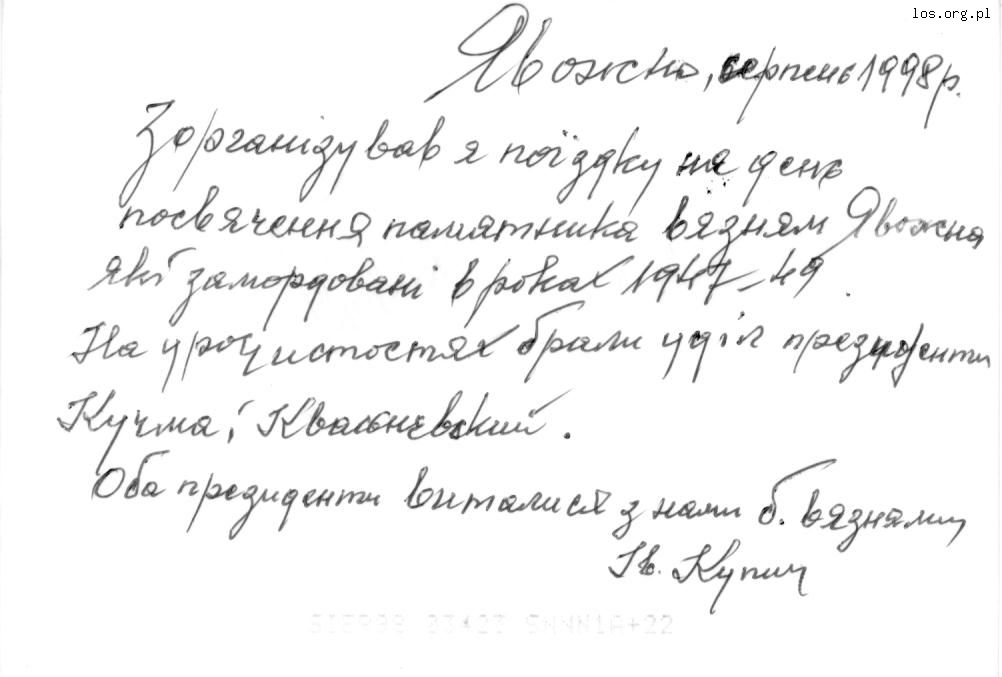 los.org.pl
Явожно, серпень 1998р.
Зорганізував я поїздку на день
посвячення памятника вязням Явожна
які замордовані в роках 1947-49.
На урочистостях брали уділ президенти
Кучма і Квасьнєвский.
Оба президенти виталися з нами б. вязнями
Ів. Купич